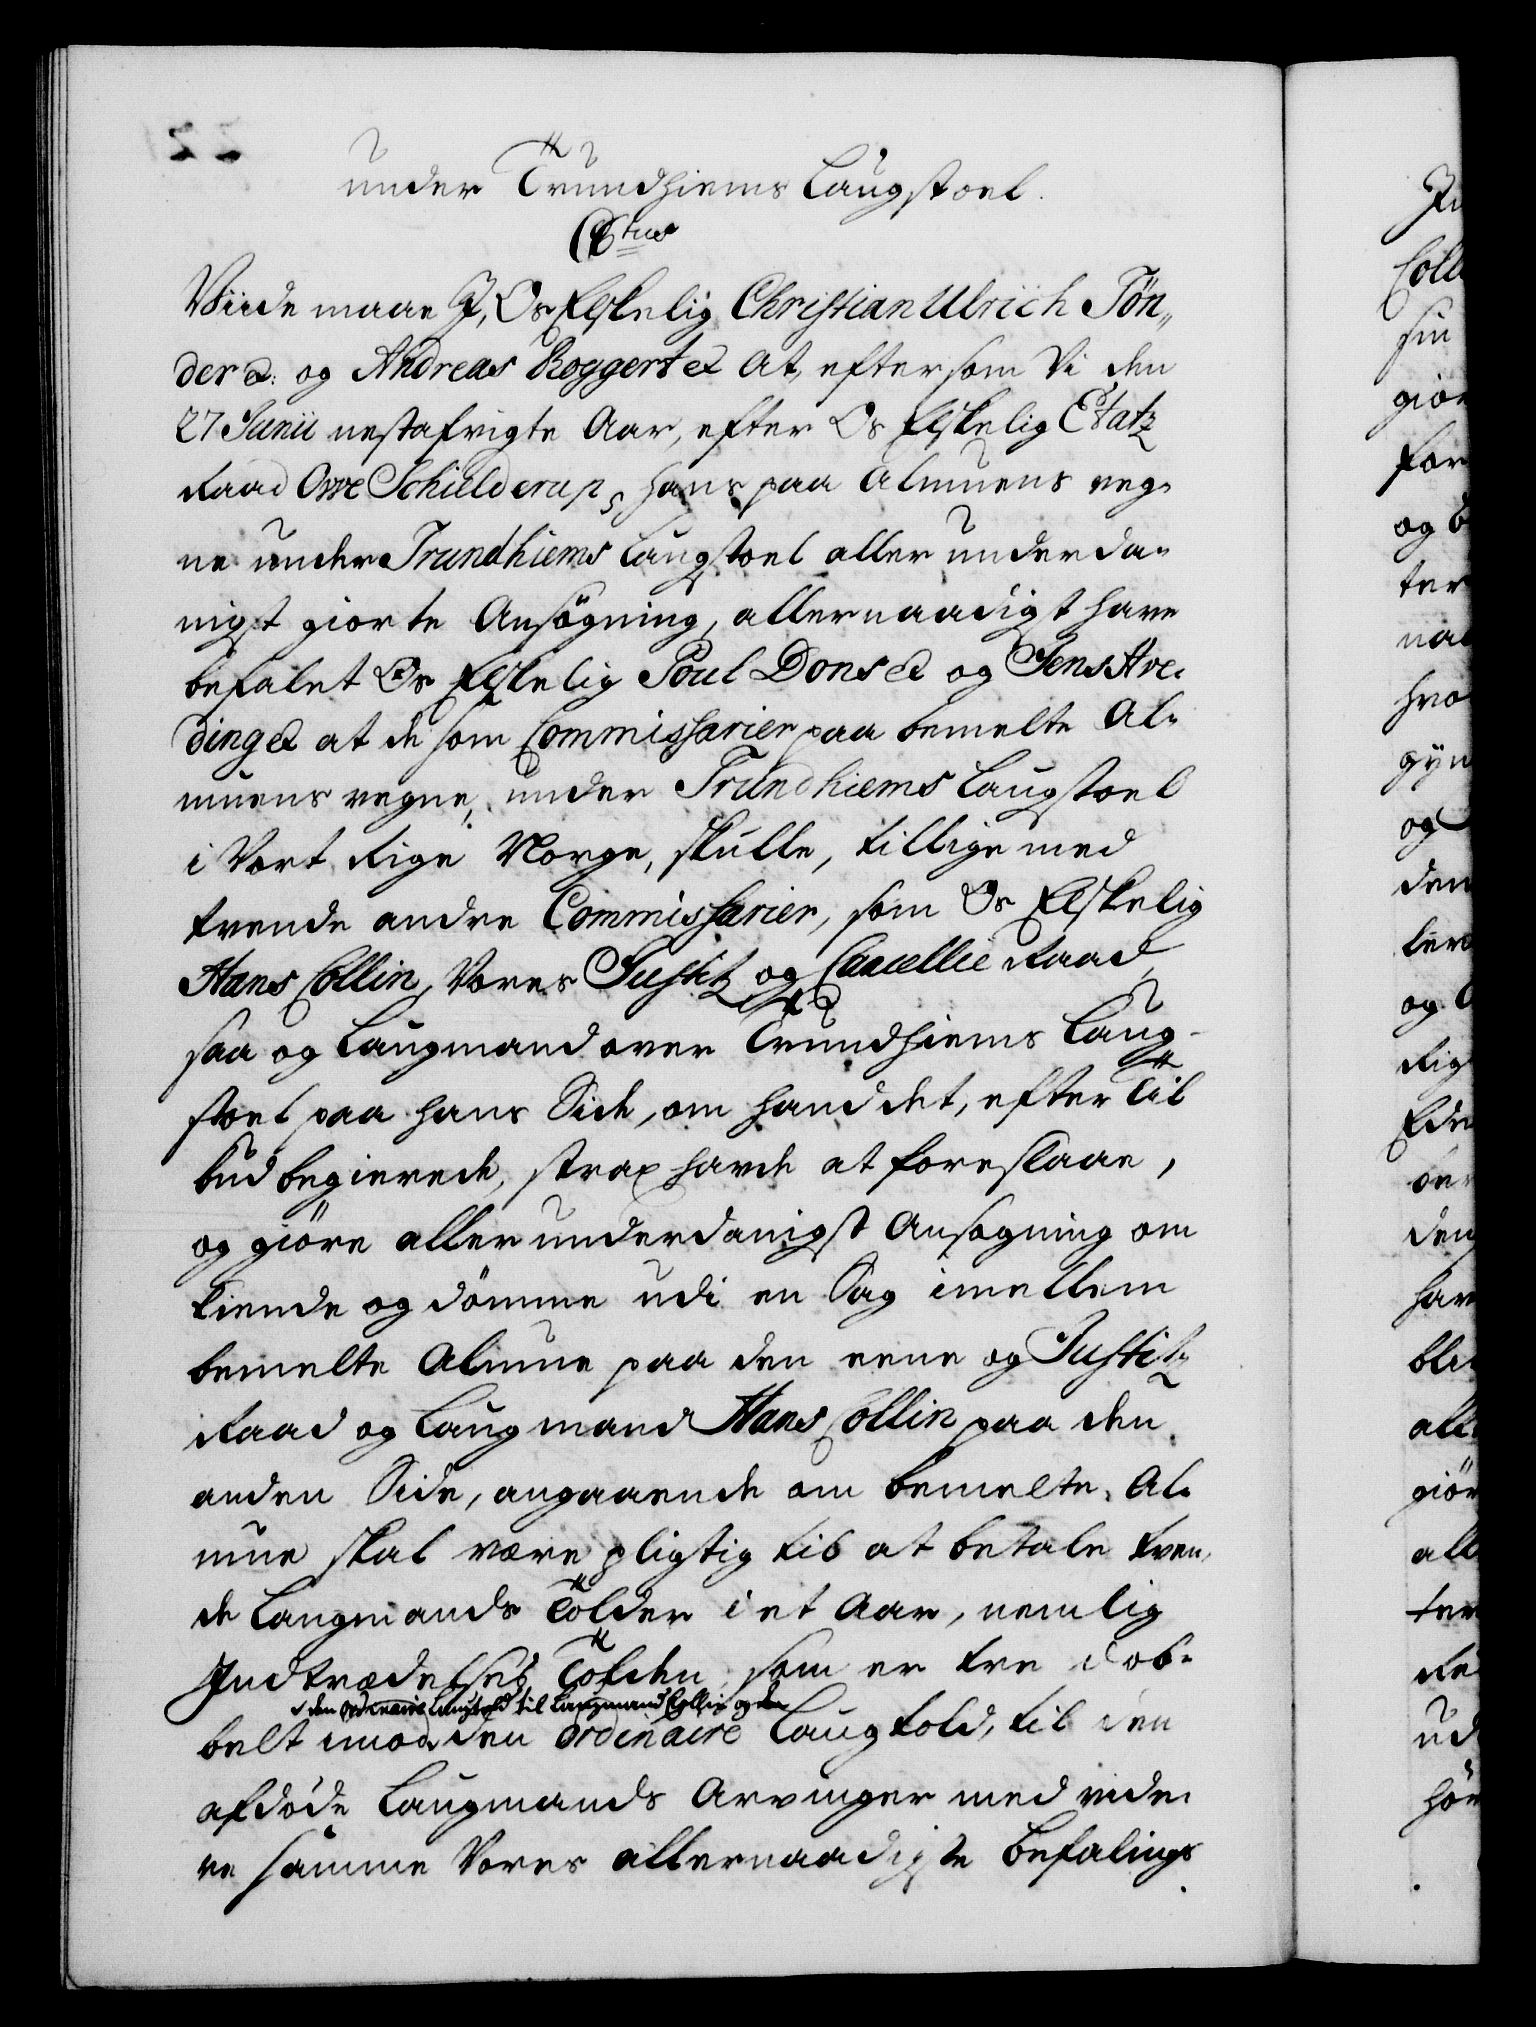 under Trundhiems Laugstoel.
Ctus
Viide maae I, Os Elskelig Christian Ulrich Tön„
der &: og Andreas Roggert & at, eftersom Vi den
27 Junii nestafvigte Aar, efter Os Elskelig Etatz
Raad Ove Schielderups, hans paa Almuens veg-
ne under Trundhiems Laugstoel aller underda-
nigst giorte Ansögning, allernaadigst have
befalet Os Elskelig Poul Dons & og Jens Ave-
ding & at de som Commissarier paa bemelte Al-
muens vegne, under Trundhiems Laugstoel
i Vort Rige Norge, skulle, tillige med
tvende andre Commissarier, som Os Elskelig
Hans Collin, Vores Justitz og Cancellie Raad,
saa og Laugmand over Trundhiems Laug-
stoel paa hans Side, om hand det, efter Til
bud begierede, strax havde at foreslaae,
og giöre allerunderdanigst Ansogning om
kiende og dömme udi en Sag imellem
bemelte Almue paa den eene og Justitz
Raad og Laugmand Hans Collin paa den
anden Side, angaaende om bemelte Al-
mue skal være pligtig til at betale tven-
de Laugmands Tolder i et Aar, nemlig
Indtrædelses Tolden, som er tre dob-
den ordinaire Laugtold til Laugmand Collin og den
belt imod den ordinaire Laugtold, til den
afdöde Laugmands Arvinger med vide-
re samme Vores allernaadigste Befalings